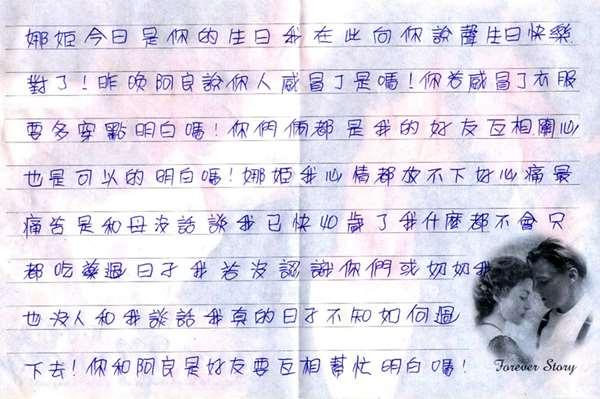 娜姫今日是你的生日我在此向你說聲生日快樂
對了！昨晚阿良說你人感冒了是嗎！你若感冒了衣服
要多穿點明白嗎！你們倆都是我的好友互相關心
也是可以的明白嗎！娜姫我心情都放不下好心痛最
痛苦是和母沒話談我已快40歲了我什麼都不會只
都吃藥過日子我若沒認識你們或奶奶我
也沒人和我談話我真的日子不知如何過
下去！你和阿良是好友要互相幫忙明白嗎！
Forever Story